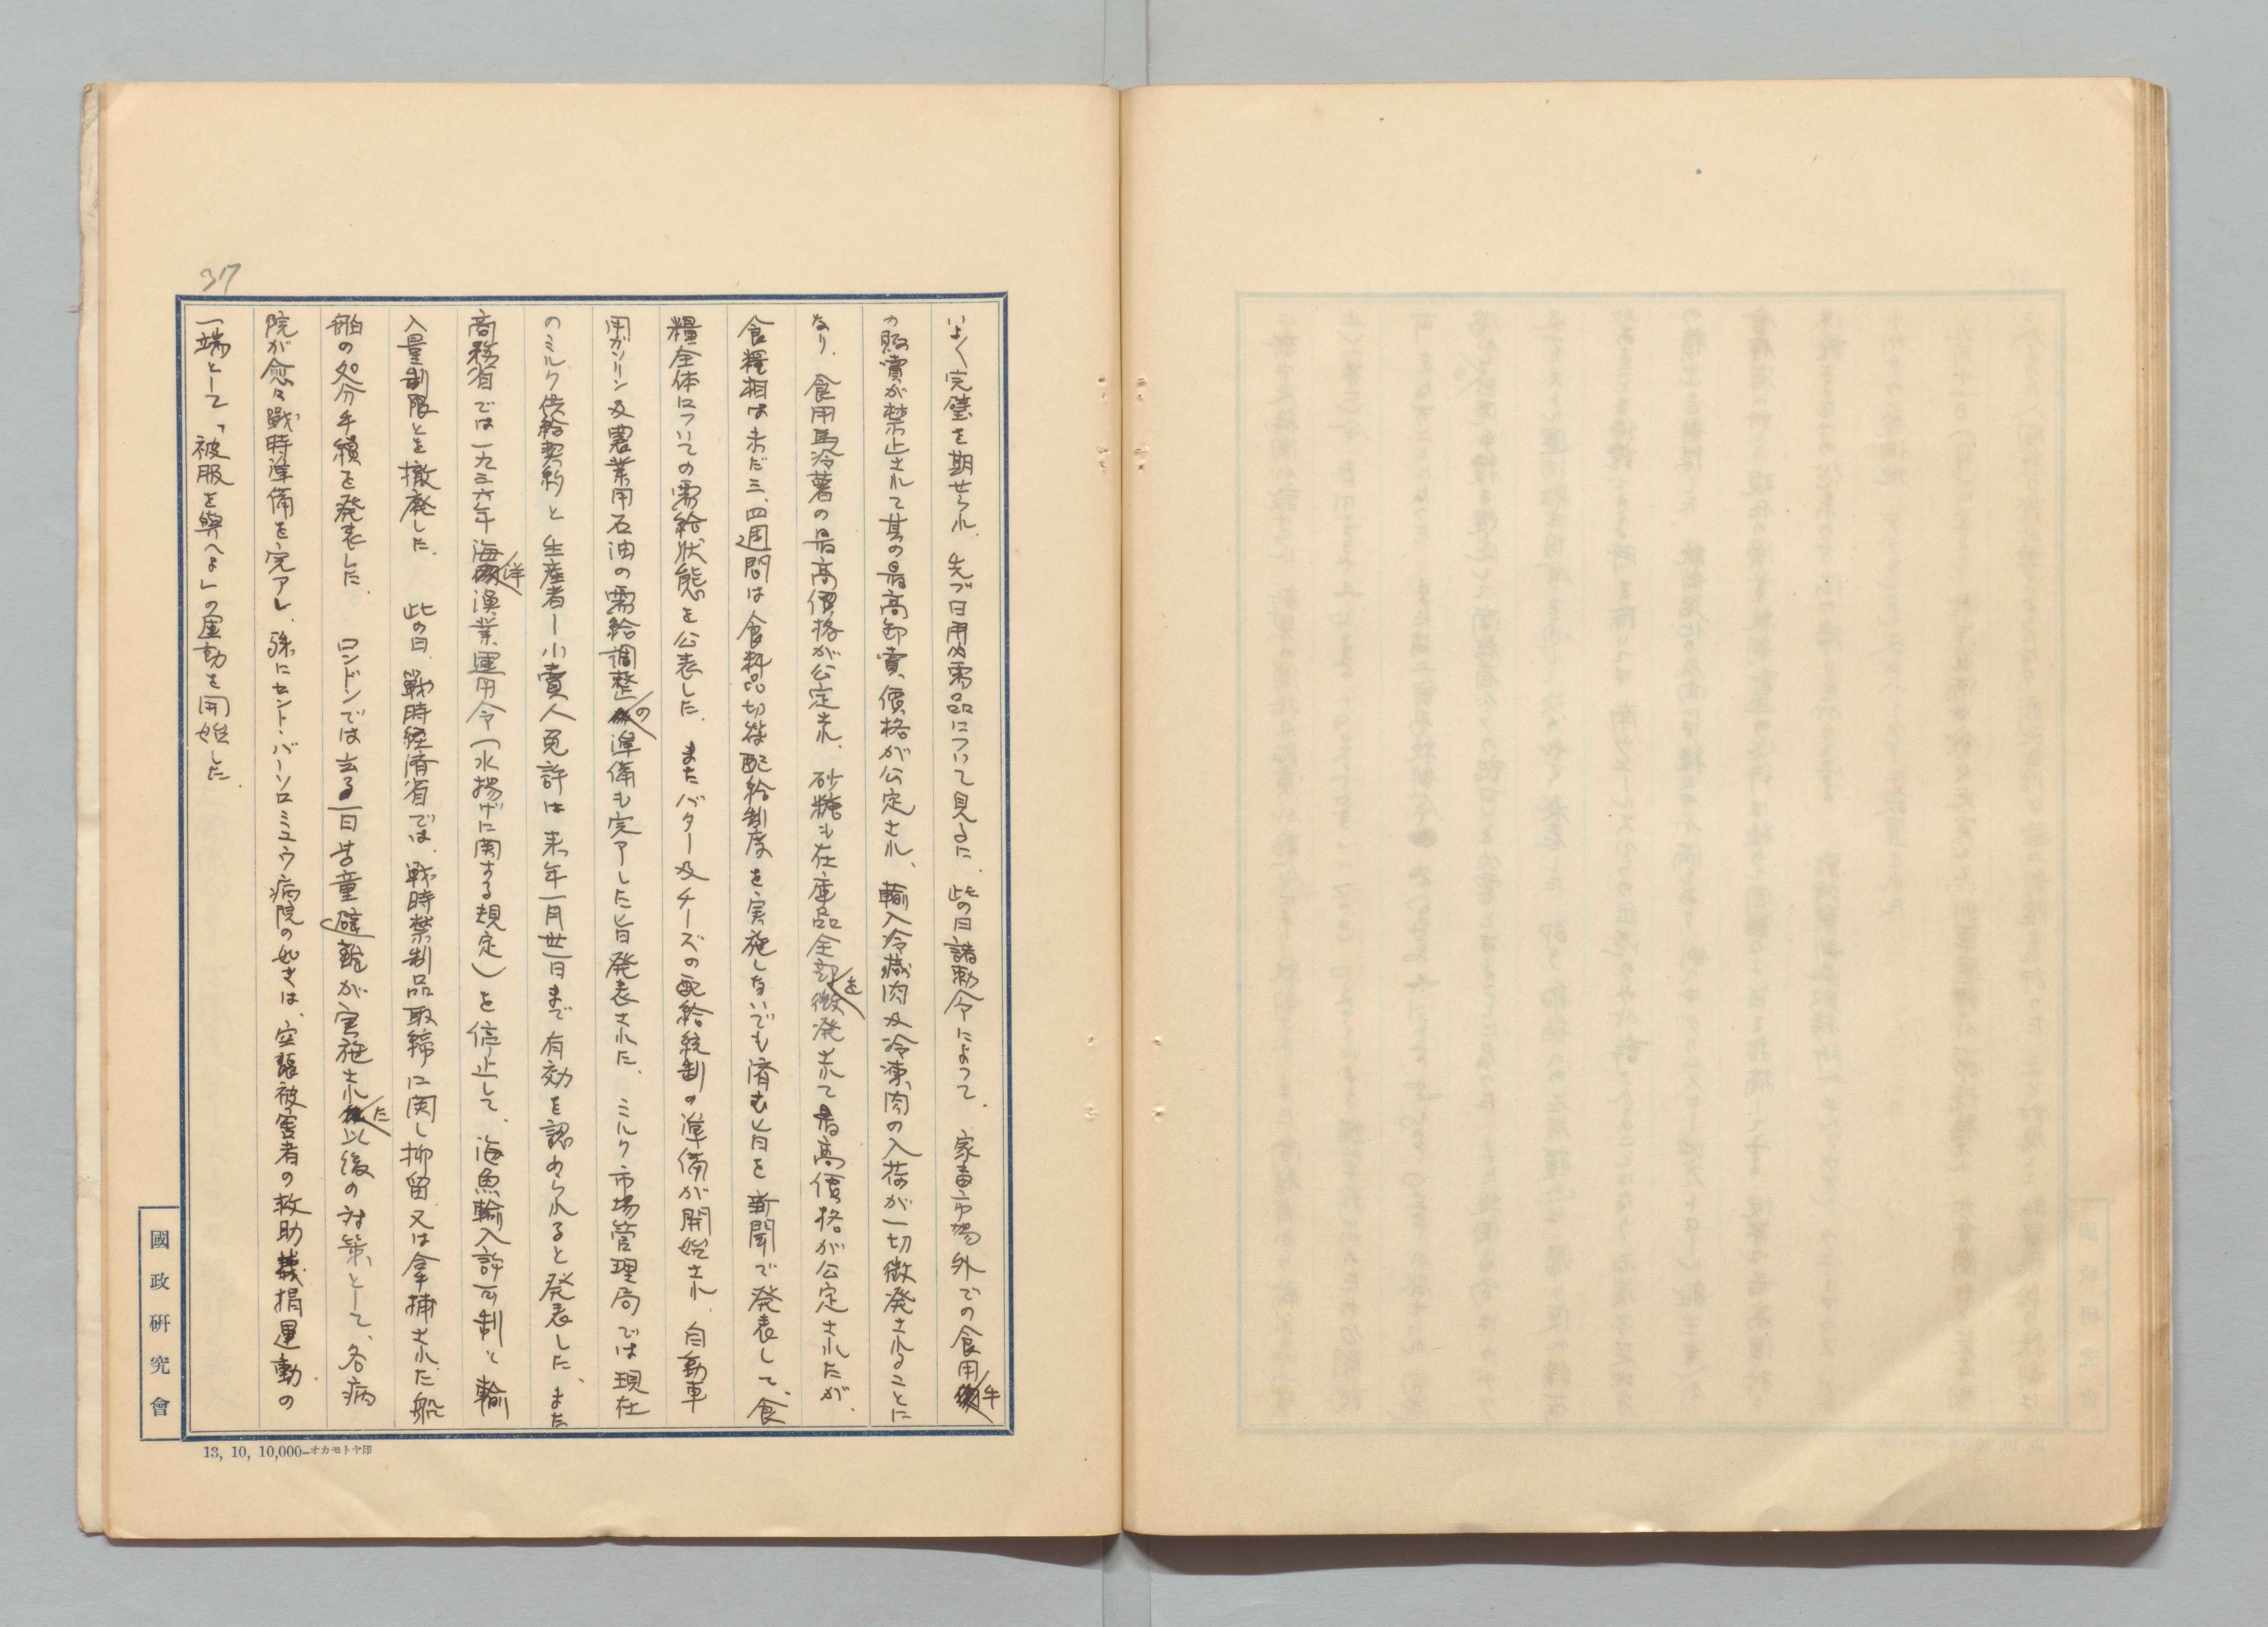 いよく完璧を期せられ、先づ日用必需品について見るに、此の日諸勅令によつて、家畜市場外での食用牛
の販賣が禁止されて其の最高卸賣價格が公定され、輸入冷藏肉及冷凍肉の入荷が一切徴発されることに
なり、食用馬冷薯の最高價格が公定され、砂糖も在庫品全部を徴発されて最高價格が公定されたが、
食糧相は未だ三、四週間は食料品切符配給制度を実施しないでも済む旨を新聞で発表して、食
糧全体についての需給状態を公表した。またバター及チーズの配給統制の準備が開始され、自動車
用ガソリン及農業用石油の需給調整の準備も完了した旨発表された。ミルク市場管理局では現在
のミルク供給契約と生産者ー小賣人免許は来年一月卅一日まで有効を認められると発表した、また
商務省では一九三六年海洋漁業運用令（水揚げに関する規定）を停止して、海魚輸入許可制と輸
入量制限とを撤廃した。此の日、戦時経済省では、戦時禁制品取締に関し抑留又は拿捕された船
舶の処分手續を発表した。ロンドンでは去る一日学童避難が実施された以後の対策として、各病
院が愈々戰時準備を完了し、殊にセント・バーソロミュウ病院の如きは、空襲被害者の救助義捐運動の
一端として「被服を與へよ」の運動を開始した。
37
國政研究會
13, 10, 10,000—オカモトヤ印